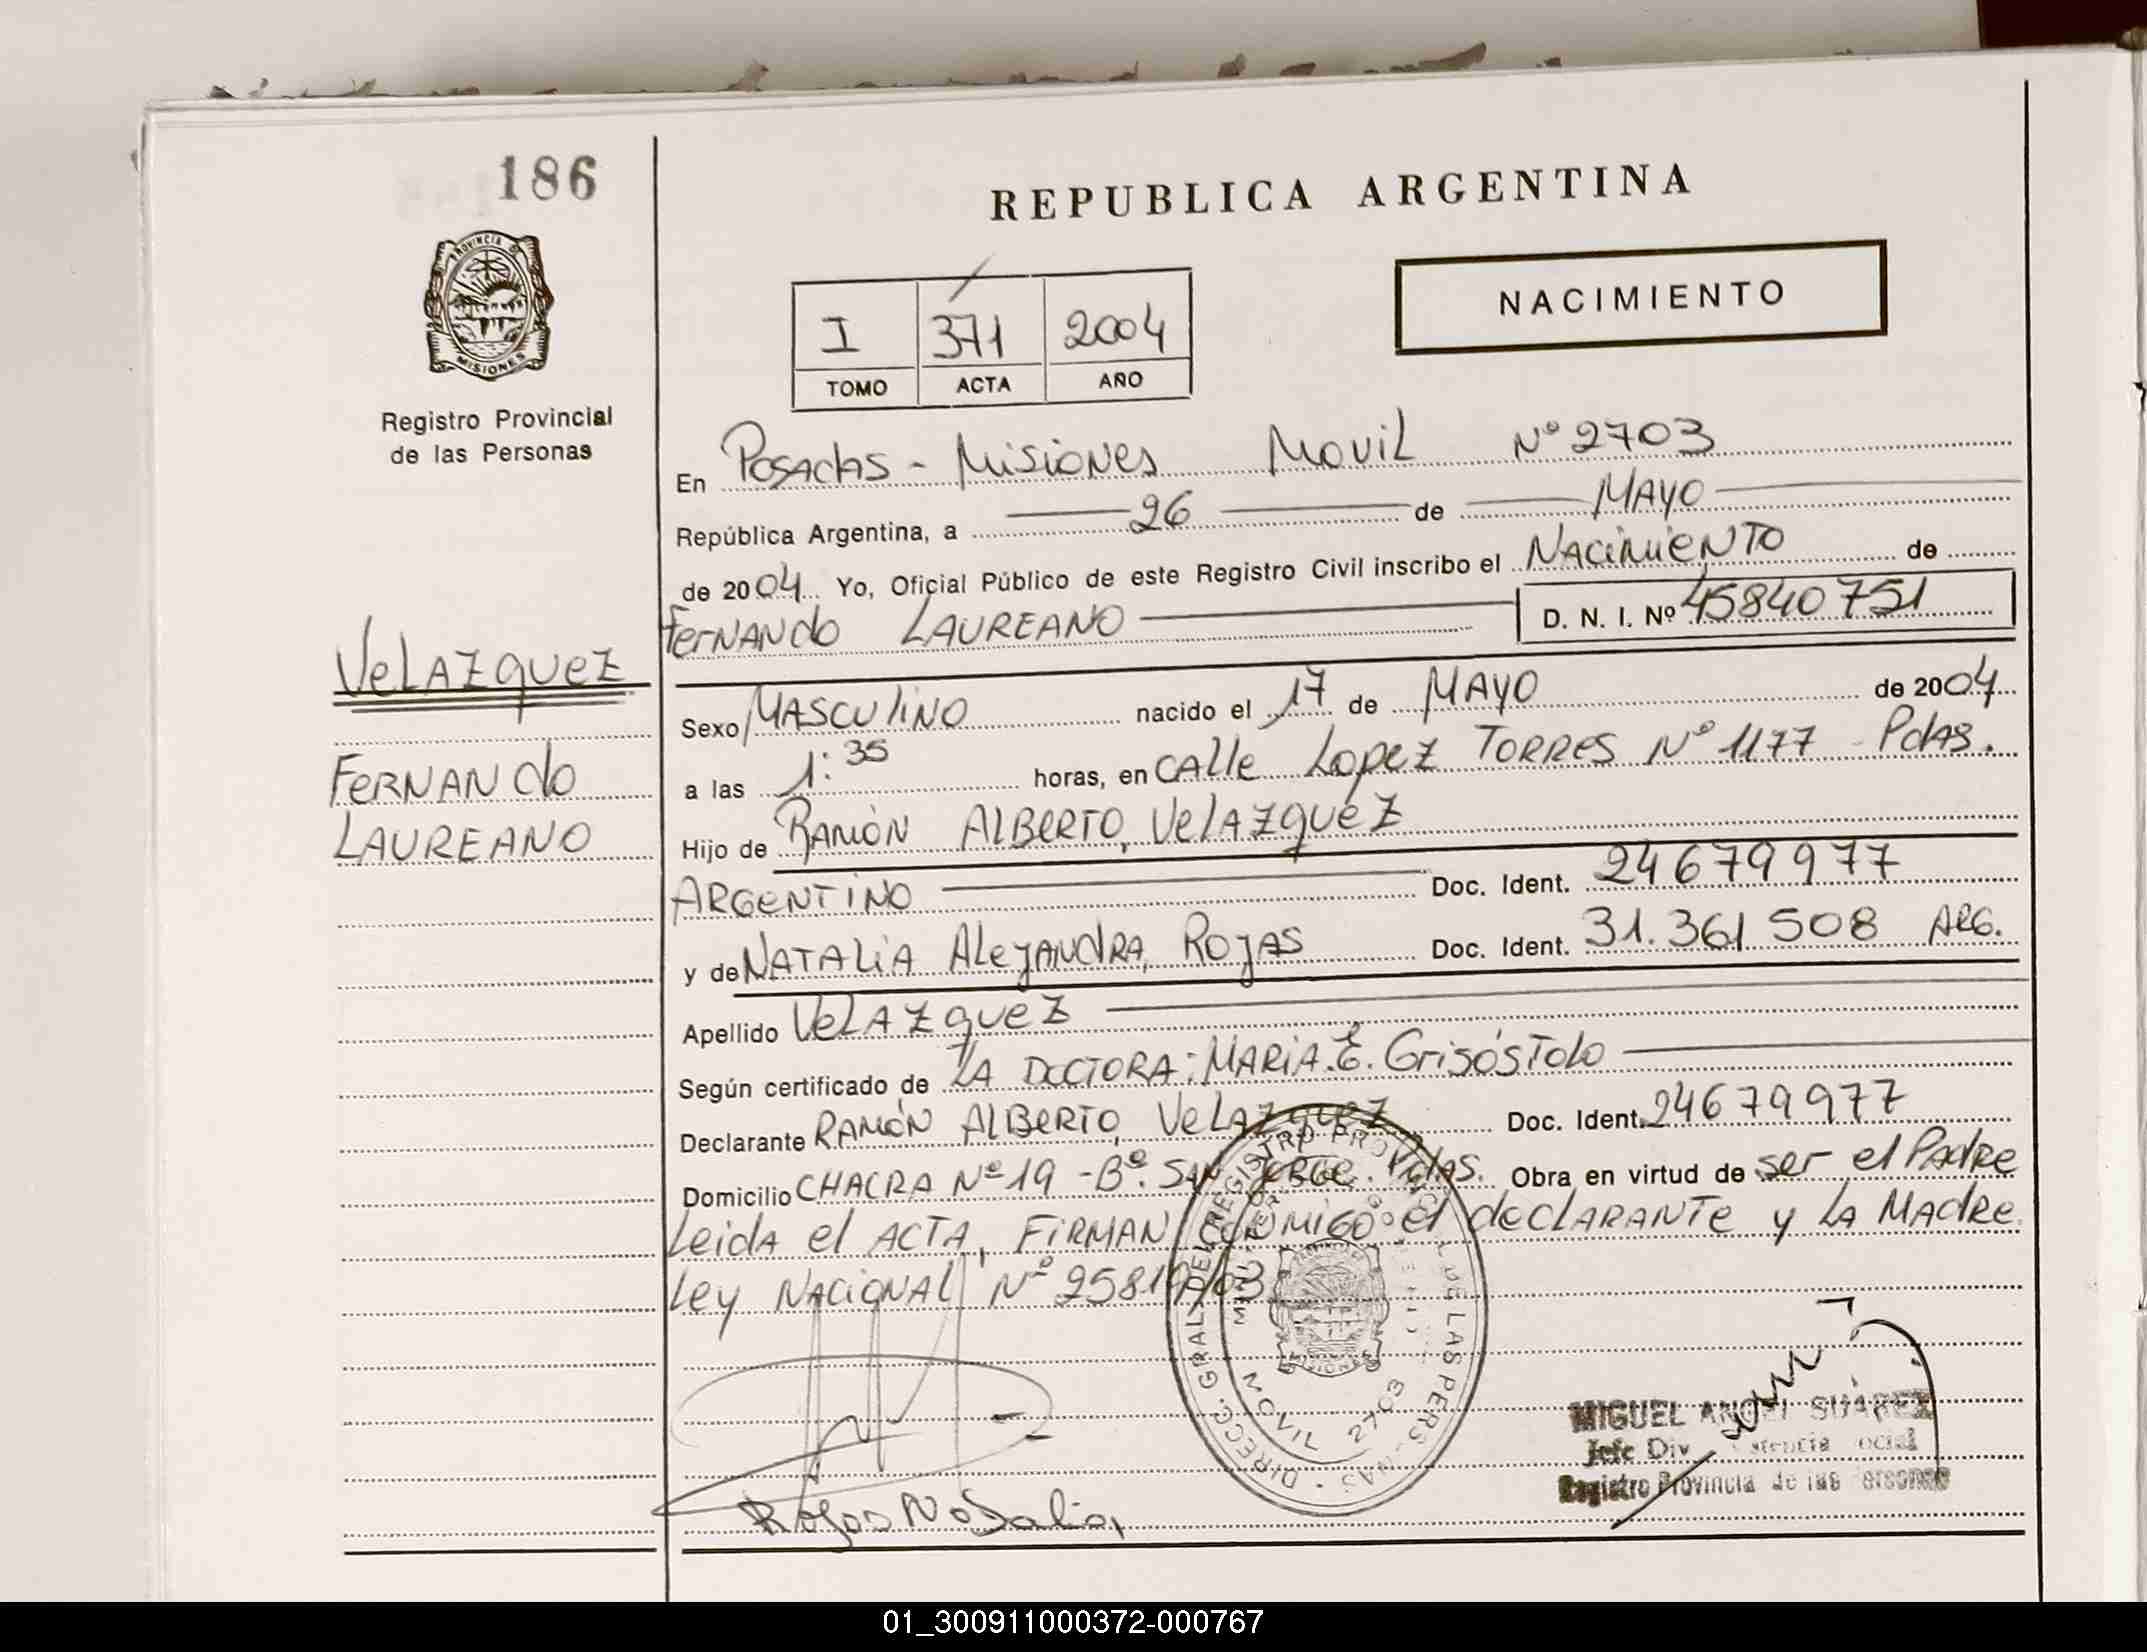 186
REPUBLICA ARGENTINA
PROVINCIA D
MISIONES
Registro Provincial
de las Personas
I 371 2004
TOMO ACTA AÑO
NACIMIENTO
En Posadas - Misiones Movil Nº 2703
República Argentina, a 26 de Mayo
de 2004 Yo, Oficial Público de este Registro Civil inscribo el Nacimiento de
Fernando Laureano D. N. I. Nº 45840751
Velazquez
Fernando
Laureano
Sexo Masculino nacido el 17 de Mayo de 2004
a las 1:35 horas, en calle Lopez Torres Nº 1177 - Pdas.
Hijo de Ramón Alberto, Velazquez
Argentino Doc. Ident. 24679977
y de Natalia Alejandra, Rojas Doc. Ident. 31.361508 Arg.
Apellido Velazquez
Según certificado de La Doctora: Maria. E. Grisóstolo
Declarante Ramón Alberto, Velazquez Doc. Ident. 24679977
Domicilio Chacra Nº 19 - Bº. San Jorge. Pdas. Obra en virtud de ser el Padre
Leida el Acta, Firman conmigo el declarante y la Madre.
Ley Nacional Nº 25819/03
DIRECC. GRAL. DEL REGISTRO PROVINCIAL DE LAS PERSONAS
MOVIL 2703
MISIONES
Rojas Natalia
MIGUEL ANGEL SUAREZ
Jefe Div. Social
Registro Provincial de las Personas
01_300911000372-000767